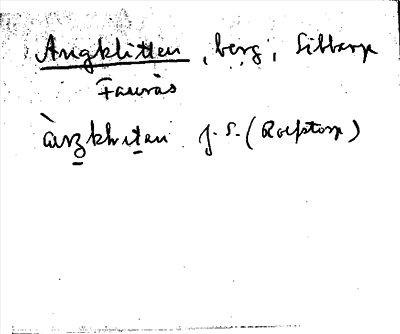 Ängklitten, berg, Sibbarp
Faurås
àŋklıtən J. S. (Roestorp)